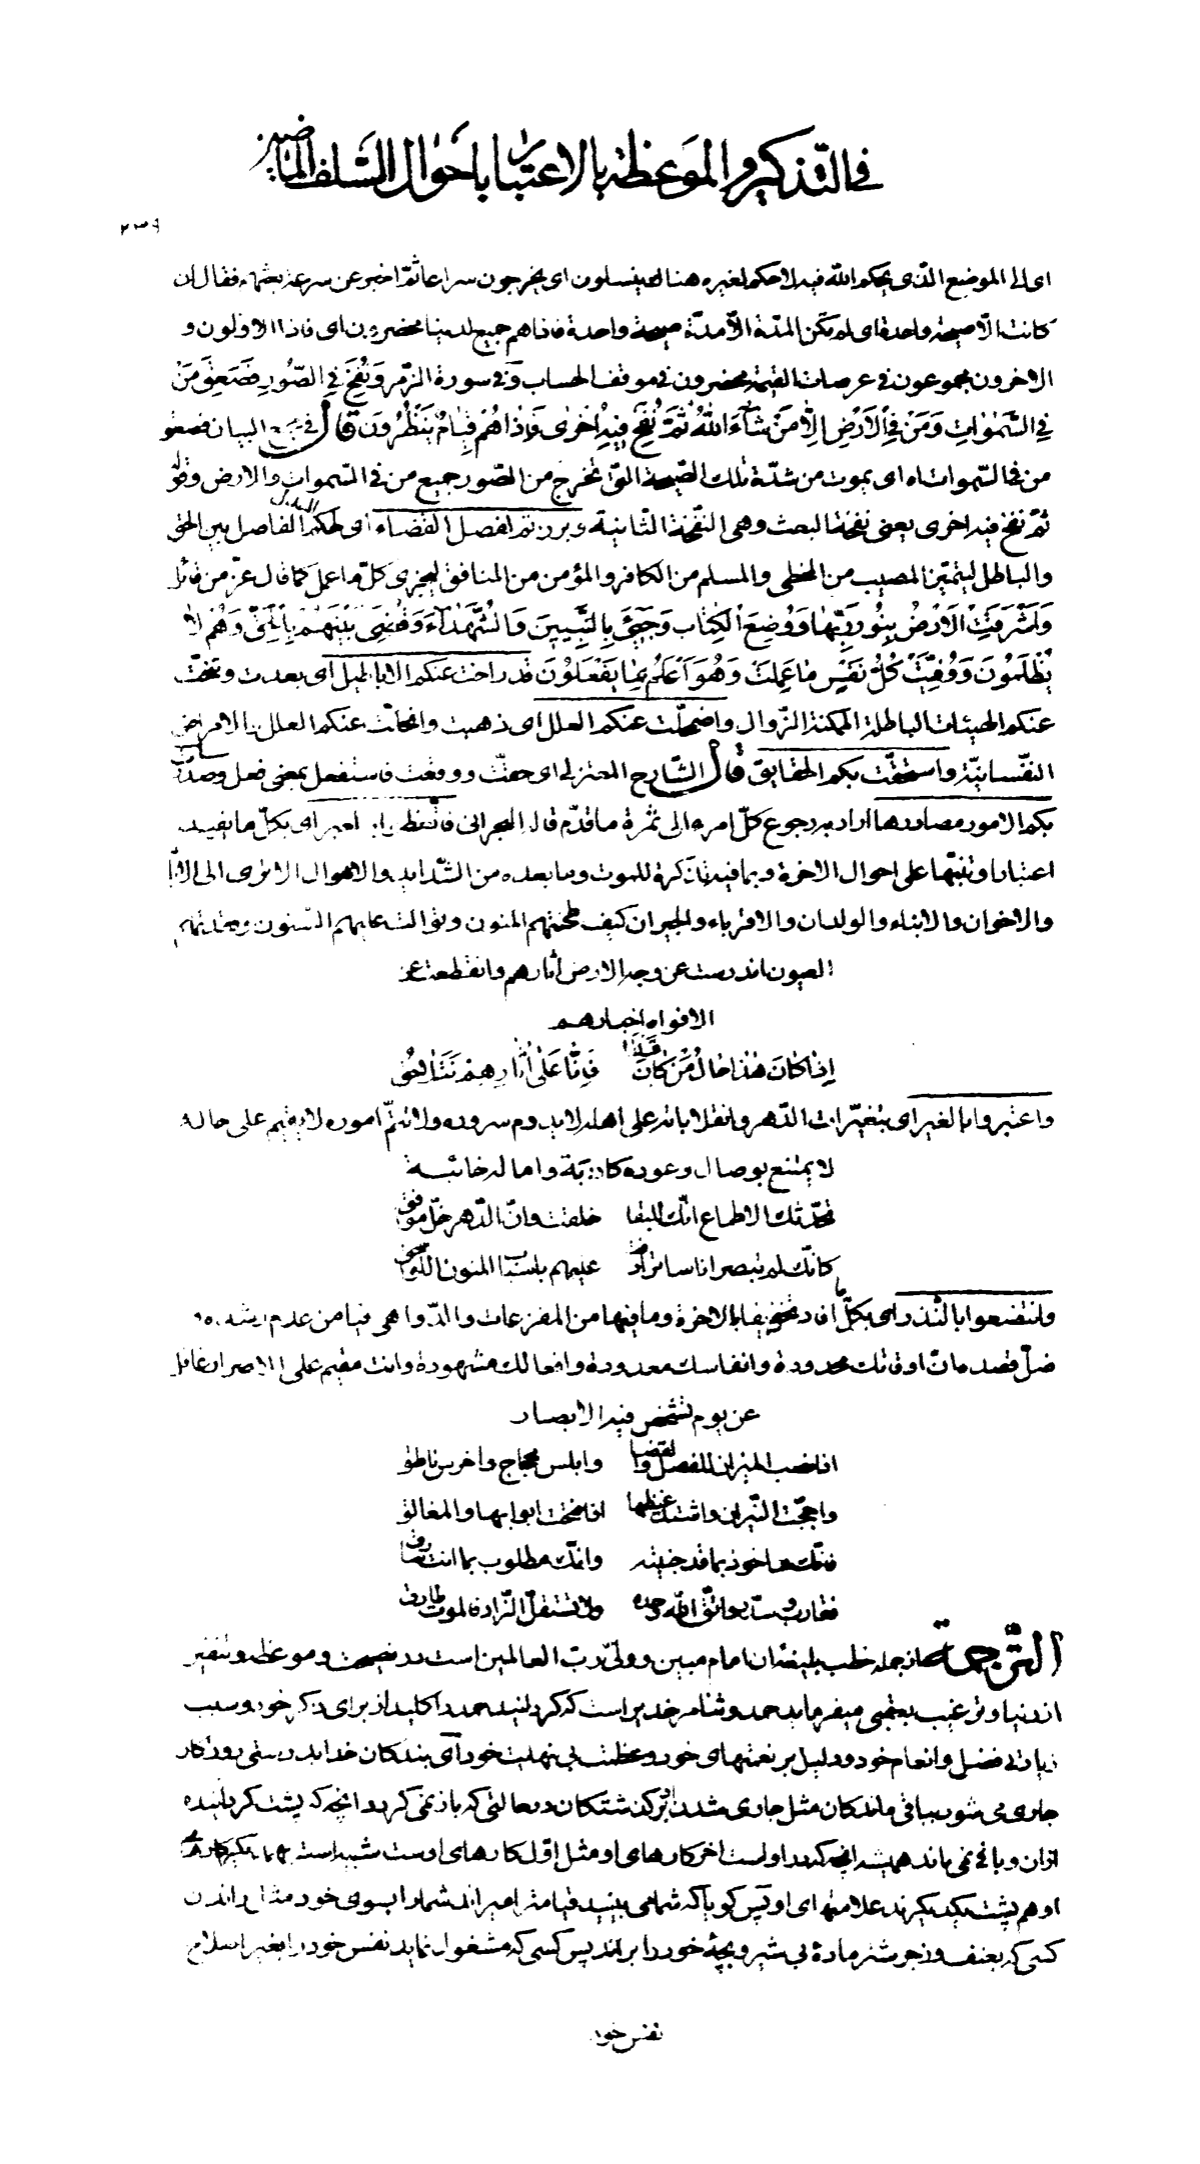 في التذكير والموعظة بالاعتبار باحوال السلف الماضين
٢٣٩
اى الى الموضع الذى يحكم اللّه فيه لا حكم لغيره هنالك ينسلون اى يخرجون سراعا ثمّ اخبر عن سرعة بعثهم فقال ان
كانت الّا صيحة واحدة اى لم تكن المدّة الّا مدّة صيحة واحدة فاذا هم جميع لدينا محضرون اى فاذا الاوّلون و
الاخرون مجموعون في عرصات القيمة محضرون في موقف الحساب و في سورة الزّمر وَ نُفِخَ فِي الصُّورِ فَصَعِقَ مَنْ
فِي السَّمٰوٰاتِ وَ مَنْ فِي الْاَرْضِ اِلّٰا مَنْ شٰآءَ اللّٰهُ ثُمَّ نُفِخَ فِيهِ اُخْرٰى فَاِذٰا هُمْ قِيٰامٌ يَنْظُرُونَ قال في مجمع البيان فصعق
من في السّموات اه اى يموت من شدّة تلك الصّيحة الّتى تخرج من الصّور جميع من في السّموات والارض وقوله
ثمّ نفخ فيه اخرى يعنى نفخة البعث وهى النّفخة الثّانية وبرزتم لفصل القضاء اى لحكم العدل الفاصل بين الحق
والباطل ليتميّز المصيب من المخطى والمسلم من الكافر والمؤمن من المنافق ليجزى كلّ ما عمل كما قال عزّ من قائل
وَ اَشْرَقَتِ الْاَرْضُ بِنُورِ رَبِّهٰا وَ وُضِعَ الْكِتٰابُ وَ جِيٓئَ بِالنَّبِيّينَ وَ الشُّهَدٰآءِ وَ قُضِىَ بَيْنَهُمْ بِالْحَقِّ وَ هُمْ لٰا
يُظْلَمُونَ وَ وُفِّيَتْ كُلُّ نَفْسٍ مٰا عَمِلَتْ وَ هُوَ اَعْلَمُ بِمٰا يَفْعَلُونَ قد زاحت عنكم الاباطيل اى بعدت وتنحّت
عنكم الهيئات الباطلة الممكنة الزّوال واضمحلّت عنكم العلل اى ذهبت وانحلّت عنكم العلل والامراض
النفّسانيّة واستحقّت بكم الحقايق قال الشّارح المعتزلى اى حقّت ووقعت فاستفعل بمعنى فعل وصدرت
بكم الامور مصادرها اراد به رجوع كلّ امرء الى ثمرة ما قدّم قاله البحرانى فاتّعظوا بالعبر اى بكلّ ما يفيد
اعتبارا وتنبّها على احوال الاخرة وبما فيه تذكرة للموت وما بعده من الشّدايد والاهوال الا ترى الى الآباء
والاخوان والابناء والولدان والاقرباء والجيران كيف طحنتهم المنون وتوالت عليهم السّنون وفقدتهم
العيون اندرست عن وجه الارض آثارهم وانقطعت عن
الافواه اخبارهم
اِذٰا كٰانَ هٰذٰا حٰالُ مَنْ كٰانَ قَبْلَنٰا    فَاِنّٰا عَلٰى آثٰارِهِمْ نَتَلٰاحَقُ
واعتبروا بالغير اى بتغيّرات الدّهر وانقلاباته على اهله لا يدوم سروره ولا تتمّ اموره لا يقيم على حاله
لا يمتّع بوصال وعوده كاذبة وآماله خائبة
تحدّثك الاطماع انّك للبقا    خلقت وانّ الدّهر خلّ موافق
كانّك لم تبصر اناسا ترادفت    عليهم باسباب المنون اللّواحق
وانتفعوا بالنّذر اى بكلّ ما افاد تخويفا بالاخرة وما فيها من المفزعات والدّواهى فيا من عدم رشده و
ضلّ قصده انّ اوقاتك محدودة وانفاسك معدودة وافعالك مشهودة وانت مقيم على الاصرار غافل
عن يوم تشخص فيه الابصار
اذا نصب الميزان للفصل والقضا    وابلس محجاج واخرس ناطق
واجّجت النّيران واشتدّ غيظها    اذا فتحت ابوابها والمغالق
فانّك ماخوذ بما قد جنيته    وانّك مطلوب بما انت سارق
فقارب وسدّد واتّق اللّه وحده    ولا تستقلّ الزّاد فالموت طارق
التّرجمة از جمله خطب بليغه آن امام مبين وولىّ ربّ العالمين است در نصيحت وموعظه وتنفير
از دنيا وترغيب بعقبى ميفرمايد حمد وثنا مر خدايراست كه گردانيد حمد را كليد از براى ذكر خود وسبب
زيادتى فضل وانعام خود ودليل بر نعمتهاى خود وعظمت بى نهايت خود اى بندگان خدا بدرستى روزگار
جارى مى شود بباقى ماندگان مثل جارى شدن او بر گذشتگان در حالتى كه باز نمى گردد آنچه كه پشت گردانيده
ازان وباقى نمى ماند هميشه آنچه كه در اوست آخر كارهاى او مثل اوّل كارهاى اوست شبيه است بهم يكديگر كارهاى
او هم پشت يكديگرند علامتهاى او پس گويا كه شما مى بينيد قيامت را مى راند شما را بسوى خود مثل راندن
كسى كه بعنف وزجر شتر ماده بى شير وبچّه خود را براند پس كسى كه مشغول نمايد نفس خود را بغير اصلاح
نفس خود